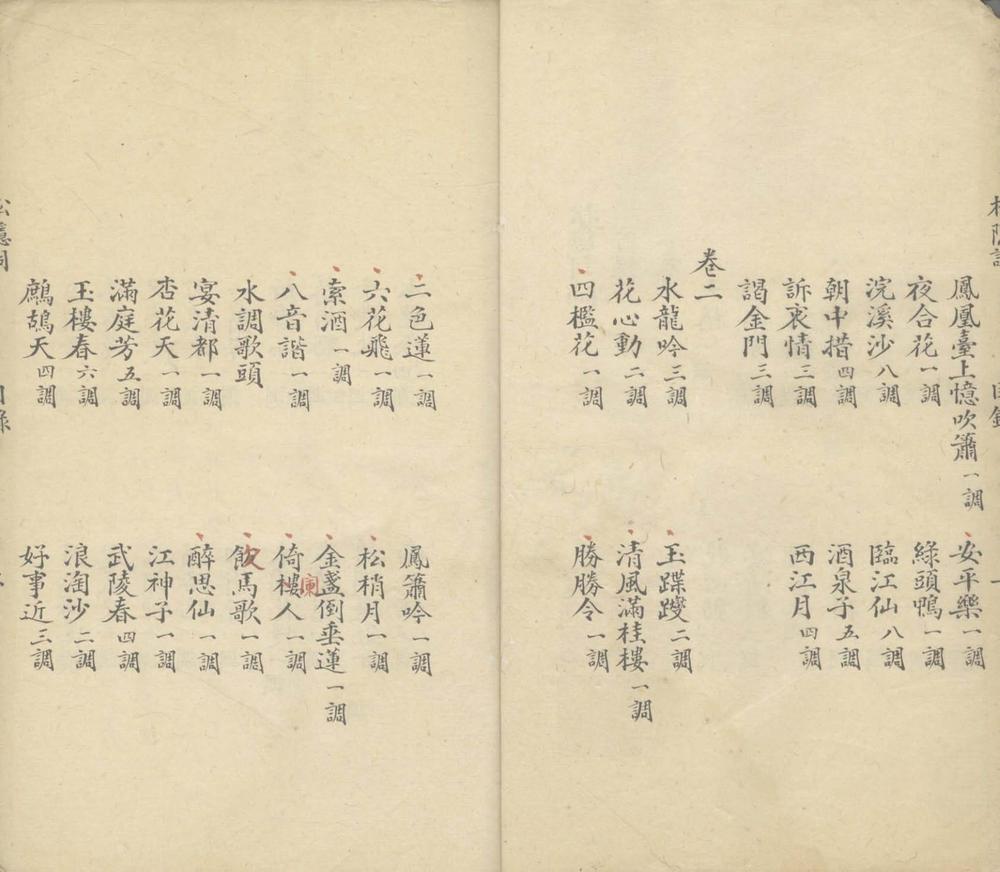 鳳凰臺上憶吹簫一調 安平樂一調
夜合花一調 綠頭鴨一調
浣溪沙八調 臨江仙八調
朝中措四調 酒泉子五調
訴衷情三調 西江月四調
謁金門三調
卷二
水龍吟三調 玉蹀躞二調
花心動二調 清風滿桂樓一調
四檻花一調 勝勝令一調
二色蓮一調 鳳簫吟一調
六花飛一調 松梢月一調
索酒一調 金盞倒垂蓮一調
八音諧一調 倚樓人一調
水調歌頭 飲馬歌一調
宴清都一調 醉思仙一調
杏花天一調 江神子一調
滿庭芳五調 武陵春四調
玉樓春六調 浪淘沙二調
鷓鴣天四調 好事近三調